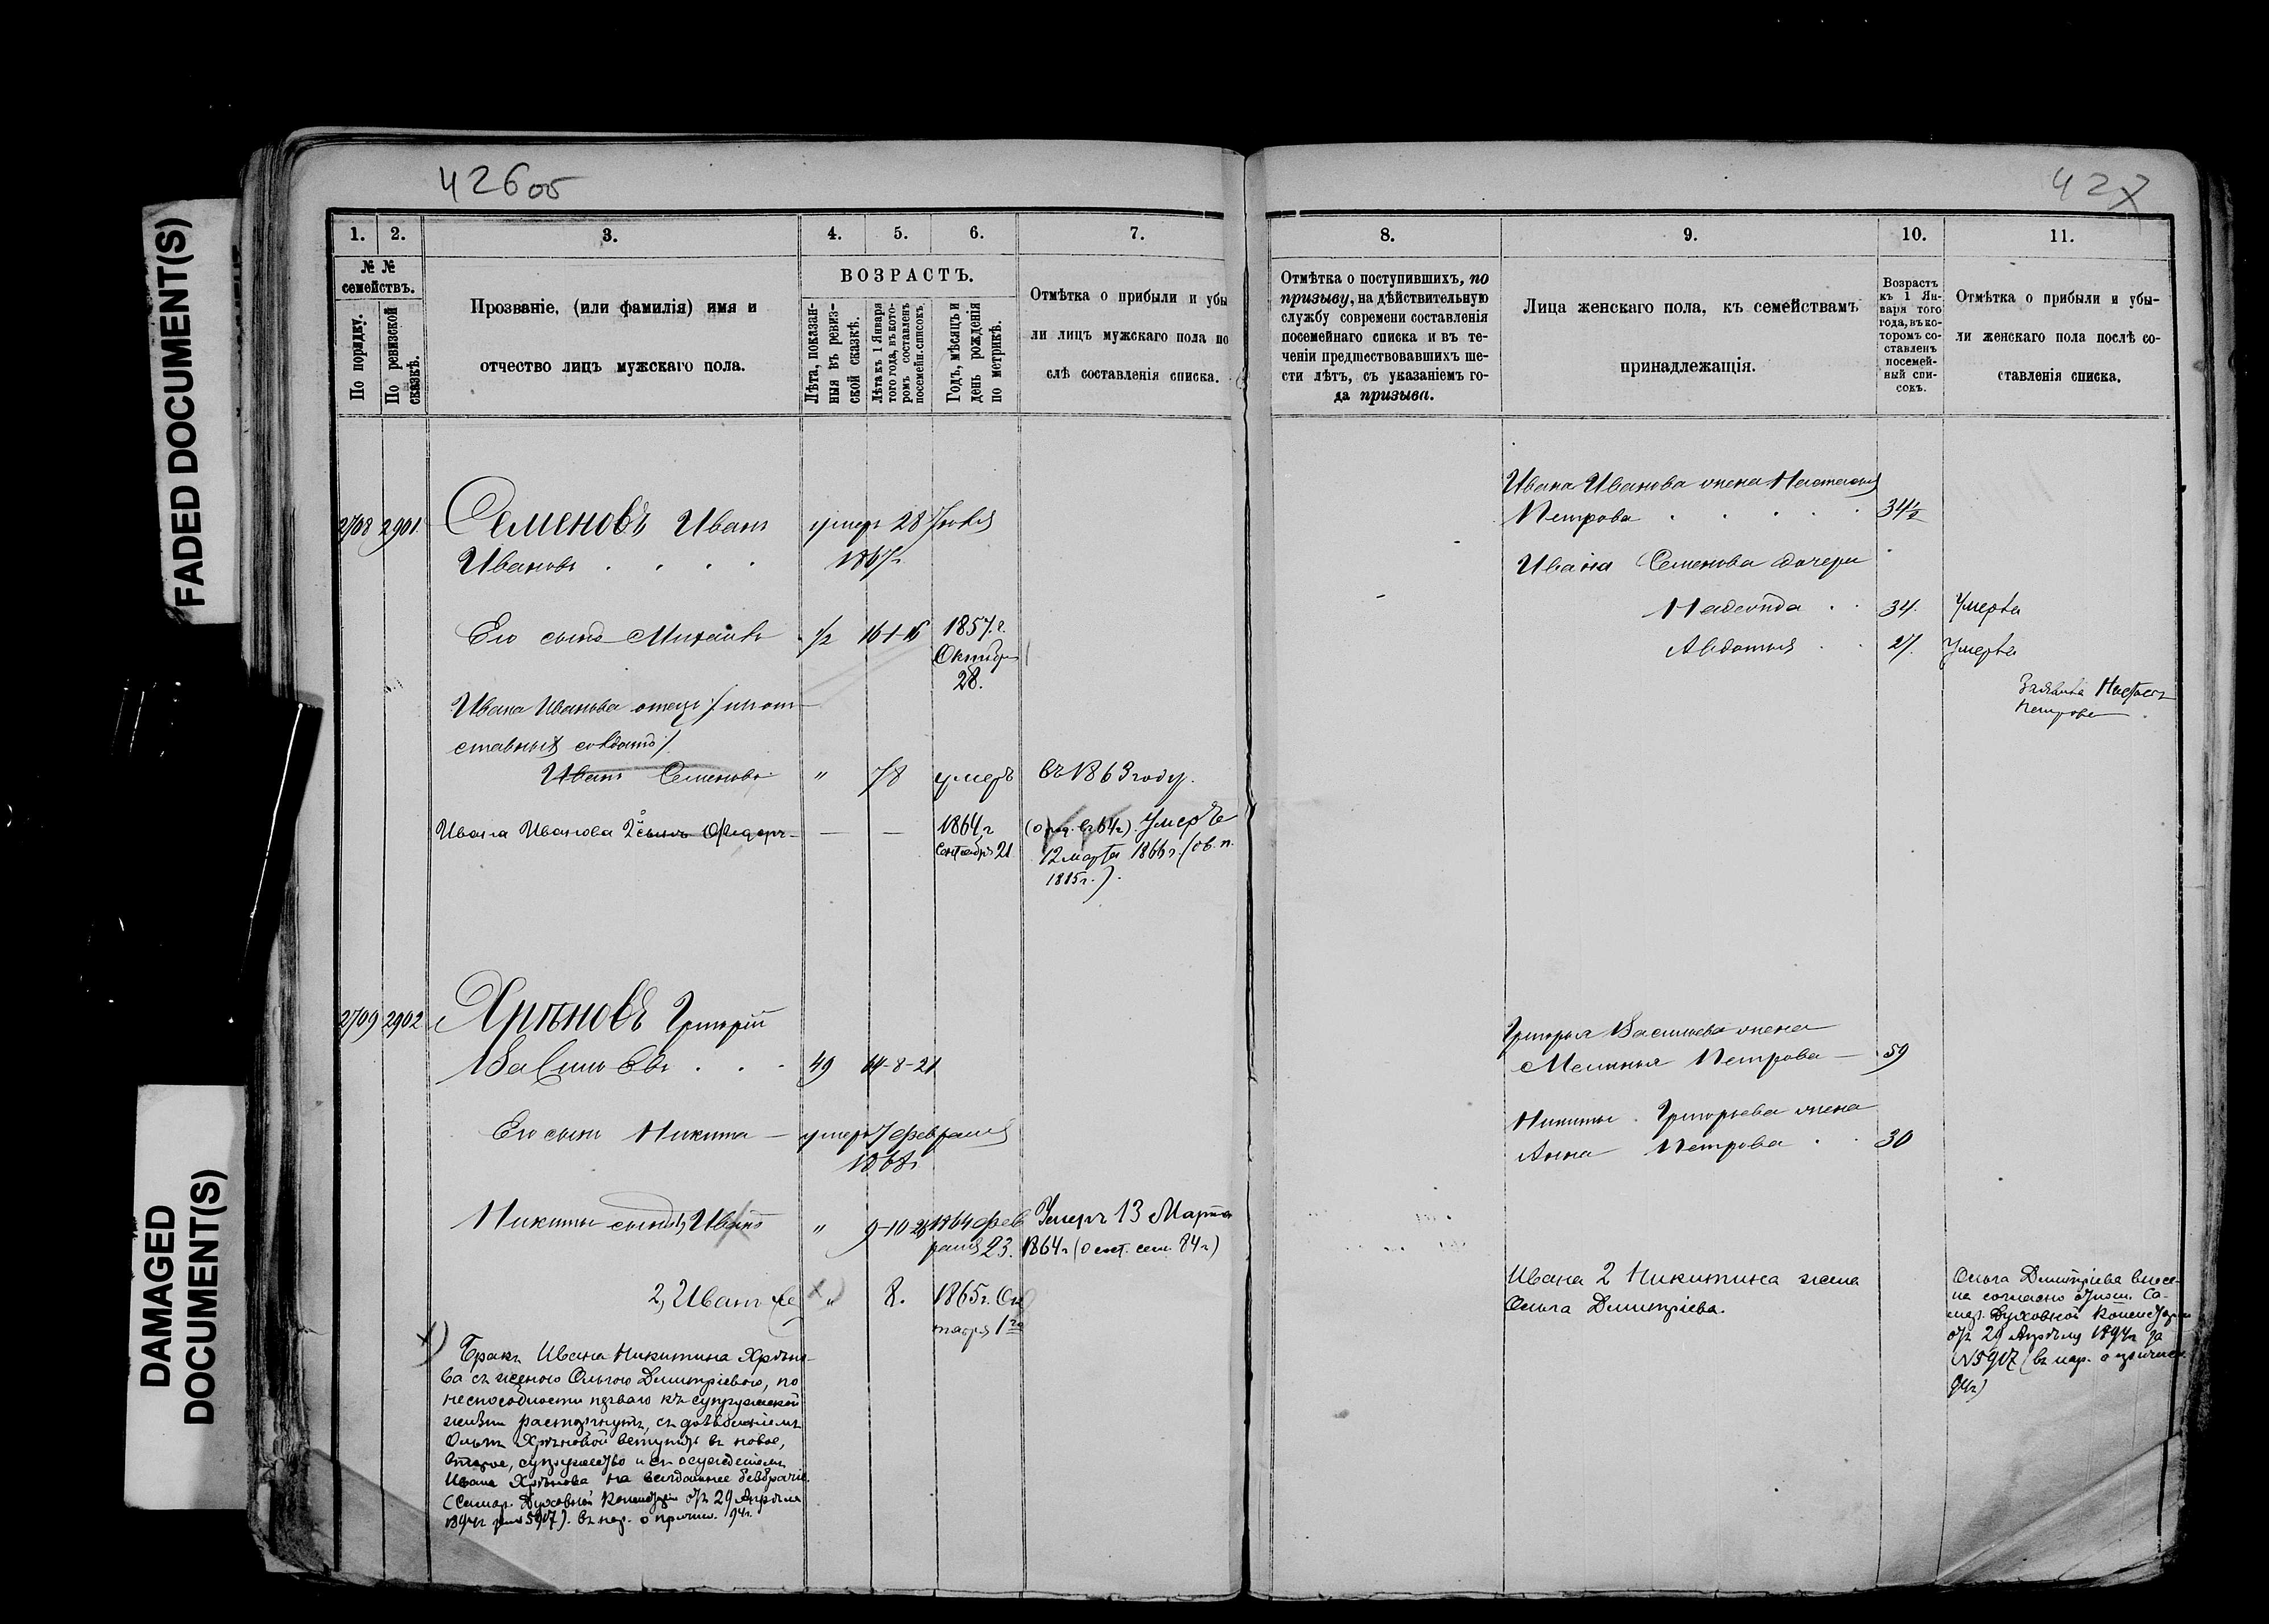 FADED DOCUMENT(S)
DAMAGED
DOCUMENT(S)
426об
427
1.
2.
3.
4.
5.
6.
7.
№ №
семействъ.
По порядку.
По ревизской
сказкѣ.
Прозваніе, (или фамилія) имя и
отчество лицъ мужскаго пола.
ВОЗРАСТЪ.
Лѣта, показан-
ныя въ ревиз-
ской сказкѣ.
Лѣта къ 1 Января
того года, въ кото-
ромъ составленъ
посемейн. списокъ
Годъ, мѣсяцъ и
день рожденія
по метрикѣ.
Отмѣтка о прибыли и убы
ли лицъ мужскаго пола по
слѣ составленія списка.
2708 2901
Семеновъ Иванъ
умеръ 28 Іюля
Ивановъ . . . .
1867г
Его сынъ Михаилъ
1/2
16
1857.г.
Октября
28.
Ивана Иванова отецъ /изъ от-
ставныхъ солдатъ/
Иванъ Семеновъ
"
78
умеръ
въ 1863 году.
Ивана Иванова 2й сынъ Ѳедоръ
—
—
1864 г
Сентября 21
64г). Умеръ
12 марта 1866г. (
2709 2902
Хрѣновъ Григорій
Васильевъ . . .
49
64-8-21
Его сынъ Никита —
умеръ 7 февраля
1868г
Никиты сынъ 1, Иванъ
"
9-10-
1864 фев
раля 23.
Умеръ 13 Марта
1864г (
84г)
2, Иванъ
х)
"
8.
1865г. Ок
тября 1го
х)
Бракъ Ивана Никитина Хрѣно-
ва съ женою Ольгою Димитріевою, по
неспособности перваго къ супружеской
жизни расторгнутъ, съ дозволеніемъ
Ольгѣ Хрѣновой вступить въ новое,
второе, супружество и съ осужденіемъ
Ивана Хрѣнова на всегдашнее безбрачіе.
(Самар. Духовной Консисторіи отъ 29 Апрѣля
1894г за № 5907). въ нар. о причисл. 94г.
8.
9.
10.
11.
Отмѣтка о поступившихъ, по
призыву, на дѣйствительную
службу современи составленія
посемейнаго списка и въ те-
ченіи предшествовавшихъ ше-
сти лѣтъ, съ указаніемъ го-
да призыва.
Лица женскаго пола, къ семействамъ
принадлежащія.
Возрастъ
къ 1 Ян-
варя того
года, въ ко-
торомъ со-
ставленъ
посемей-
ный спи-
сокъ.
Отмѣтка о прибыли и убы-
ли женскаго пола послѣ со-
ставленія списка.
Ивана Иванова жена Настасья
Петрова . . . . .
34 1/2
Ивана Семенова дочери
Надежда . .
34.
Умерла
Авдотья . .
27.
Умерла
Петрова
Григорья Васильева жена
Меланья Петрова —
59
Никиты Григорьева жена
Анна Петрова . .
30
Ивана 2 Никитина жена
Ольга Димитріева.
Ольга Димитріева внесе-
на согласно отнош. Са-
мар. Духовной Консисторіи
отъ 29 Апрѣля 1894г за
№ 5907 (въ нар. о причисл.
94г)